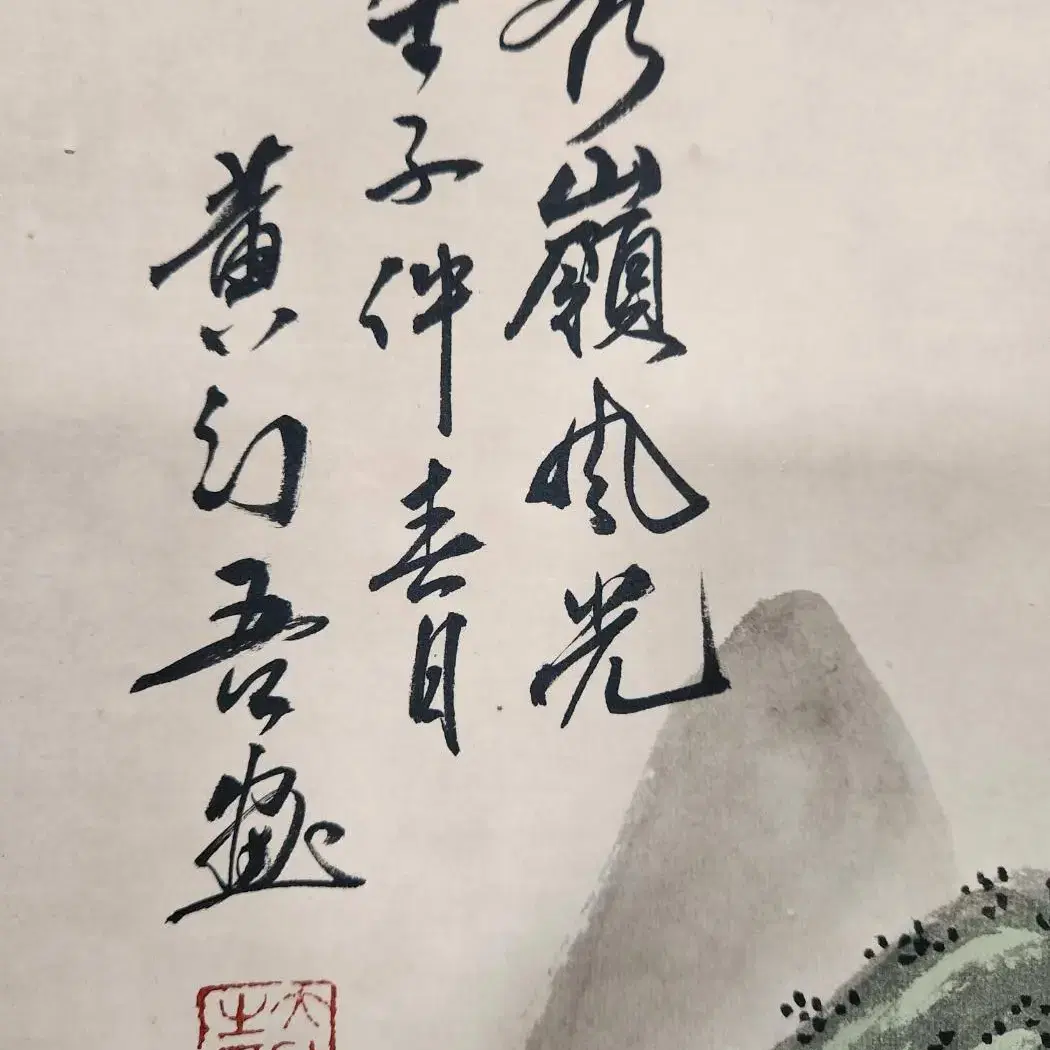 嶺風光
子仲春月
黃幻吾畫